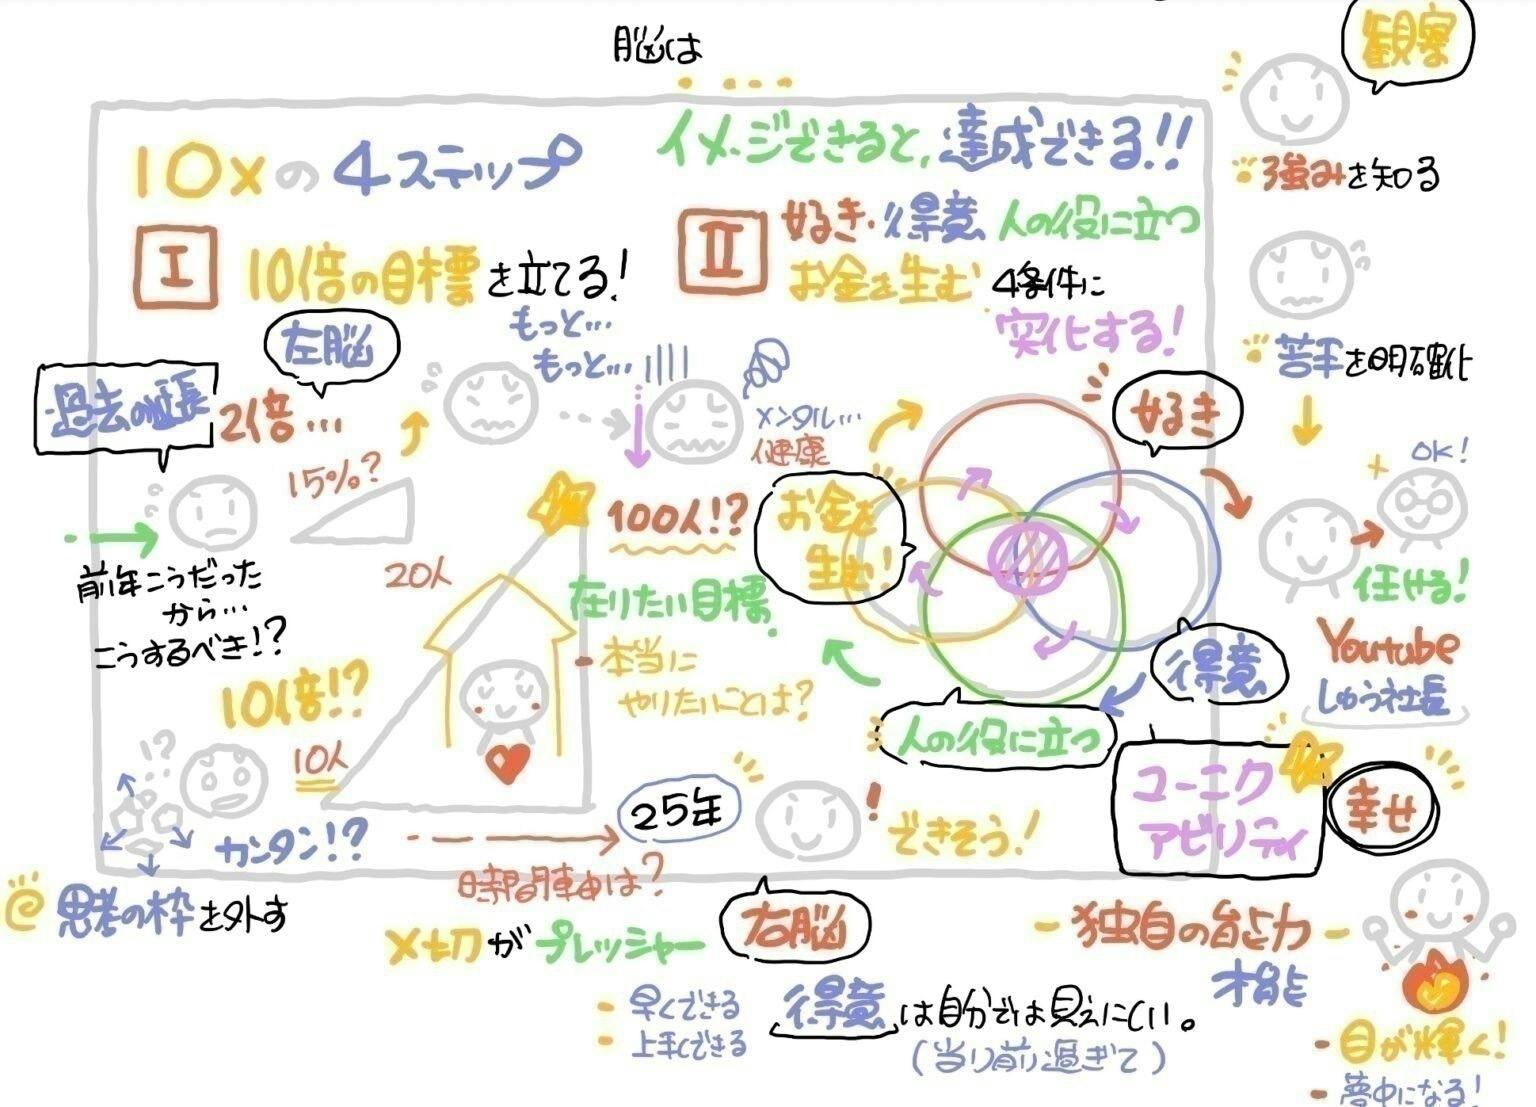 脳は
イメージできると、達成できる!!
10xの4ステップ
I
10倍の目標を立てる!
左脳
もっと…
もっと…
過去の延長
2倍…
15%?
前年こうだった
から…
こうするべき!?
メンタル…
健康
20人
100人!?
在りたい目標
本当に
やりたいことは?
10倍!?
10人
!?
カンタン!?
思考の枠を外す
25年
時間軸は?
〆切がプレッシャー
できそう!
右脳
II
好き・得意 人の役に立つ
お金を生む 4条件に
特化する!
好き
お金を
生む!
得意
人の役に立つ
ユニーク
アビリティ
幸せ
- 独自の能力 -
才能
- 目が輝く!
- 夢中になる!
- 早くできる
- 上手くできる
得意は自分では見えにくい。
(当り前過ぎて)
観察
強みを知る
苦手を明確化
OK!
任せる!
Youtube
しゅう社長